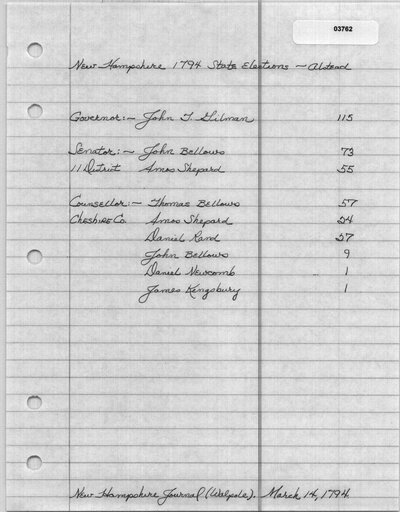 03762
New Hampshire 1794 State Elections - Alstead
Governor:- John T Gilman 115
Senator:- John Bellows 73
11 District Amos Shepard 55
Counsellor:- Thomas Bellows 57
Cheshire Co. Amos Shepard 54
Daniel Rand 27
John Bellows 9
Daniel Newcomb 1
James Kingsbury 1
New Hampshire Journal (Walpole). March 14, 1794.